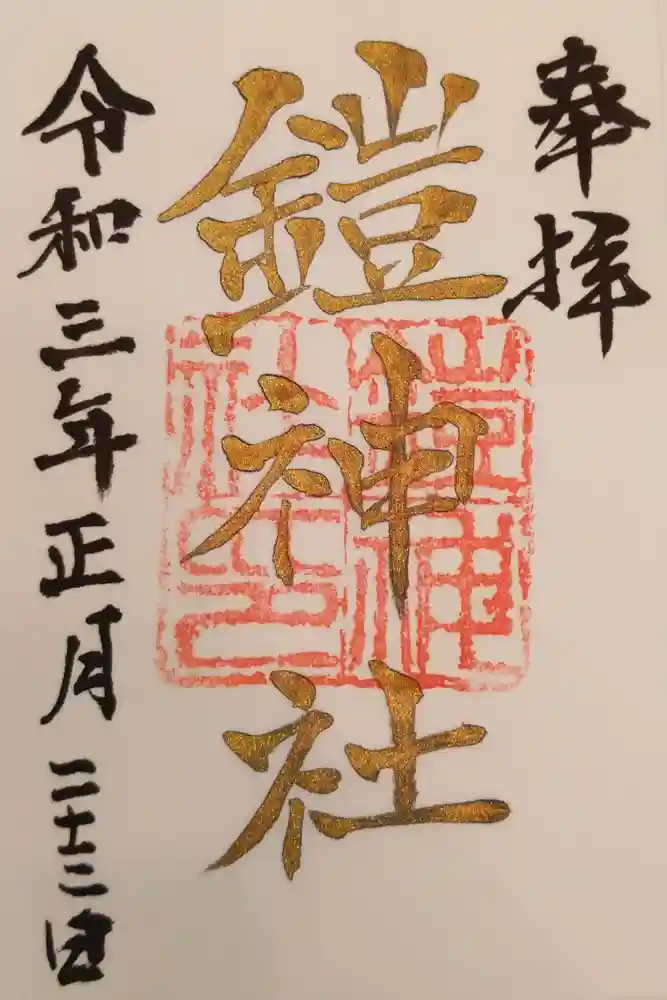 奉拝
鎧神社
鎧神社印
令和三年正月二十三日